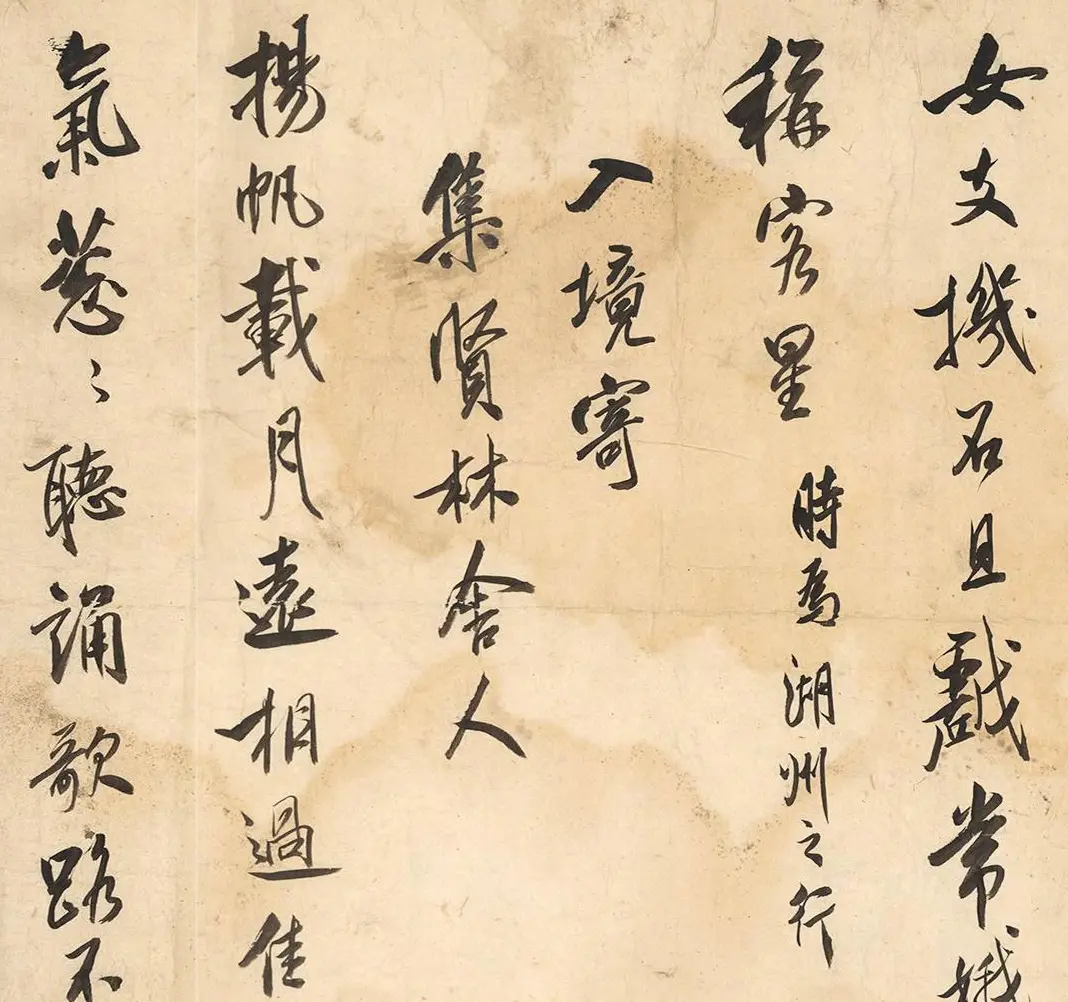 女支機石且戲常娥
稱客星 時為湖州之行
入境寄
集賢林舍人
揚帆載月遠相過佳
氣葱〻聽誦歌路不